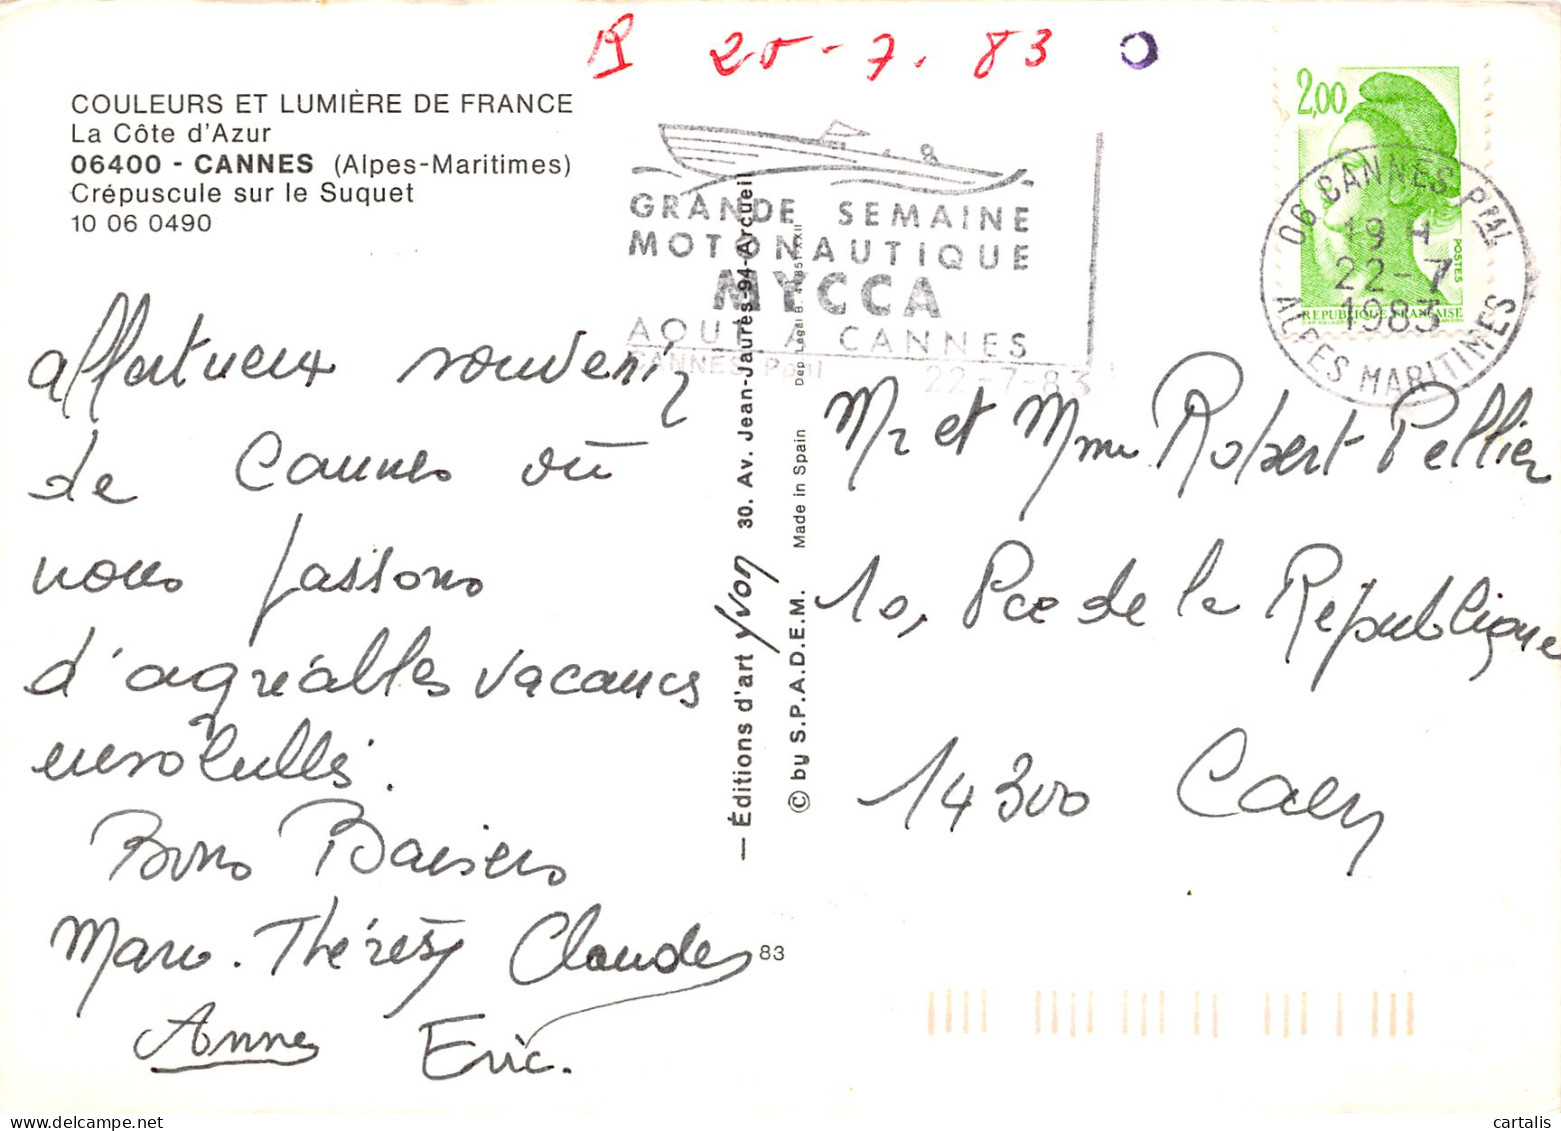 R 25-7.83
COULEURS ET LUMIÈRE DE FRANCE
La Côte d'Azur
06400 - CANNES (Alpes-Maritimes)
Crépuscule sur le Suquet
10 06 0490
GRANDE SEMAINE
MOTONAUTIQUE
MYCCA
AOUT A CANNES
CANNES Ppal 22-7-83
2,00
POSTES
REPUBLIQUE FRANÇAISE
06 CANNES Ppal
19 H
22-7
1983
ALPES MARITIMES
affectueux souvenir
de Cannes où
nous passons
d'agréables vacances
ensoleillés.
Bons Baisers
Marie. Thérèse Claude
Anne Eric.
— Éditions d'art yvon 30. Av. Jean-Jaurès-94-Arcueil
© by S.P.A.D.E.M. Made in Spain Dep. Légal B. XXII
83
Mr et Mme Robert Pellier
10, Pce de la République
14300 Caen
cartalis